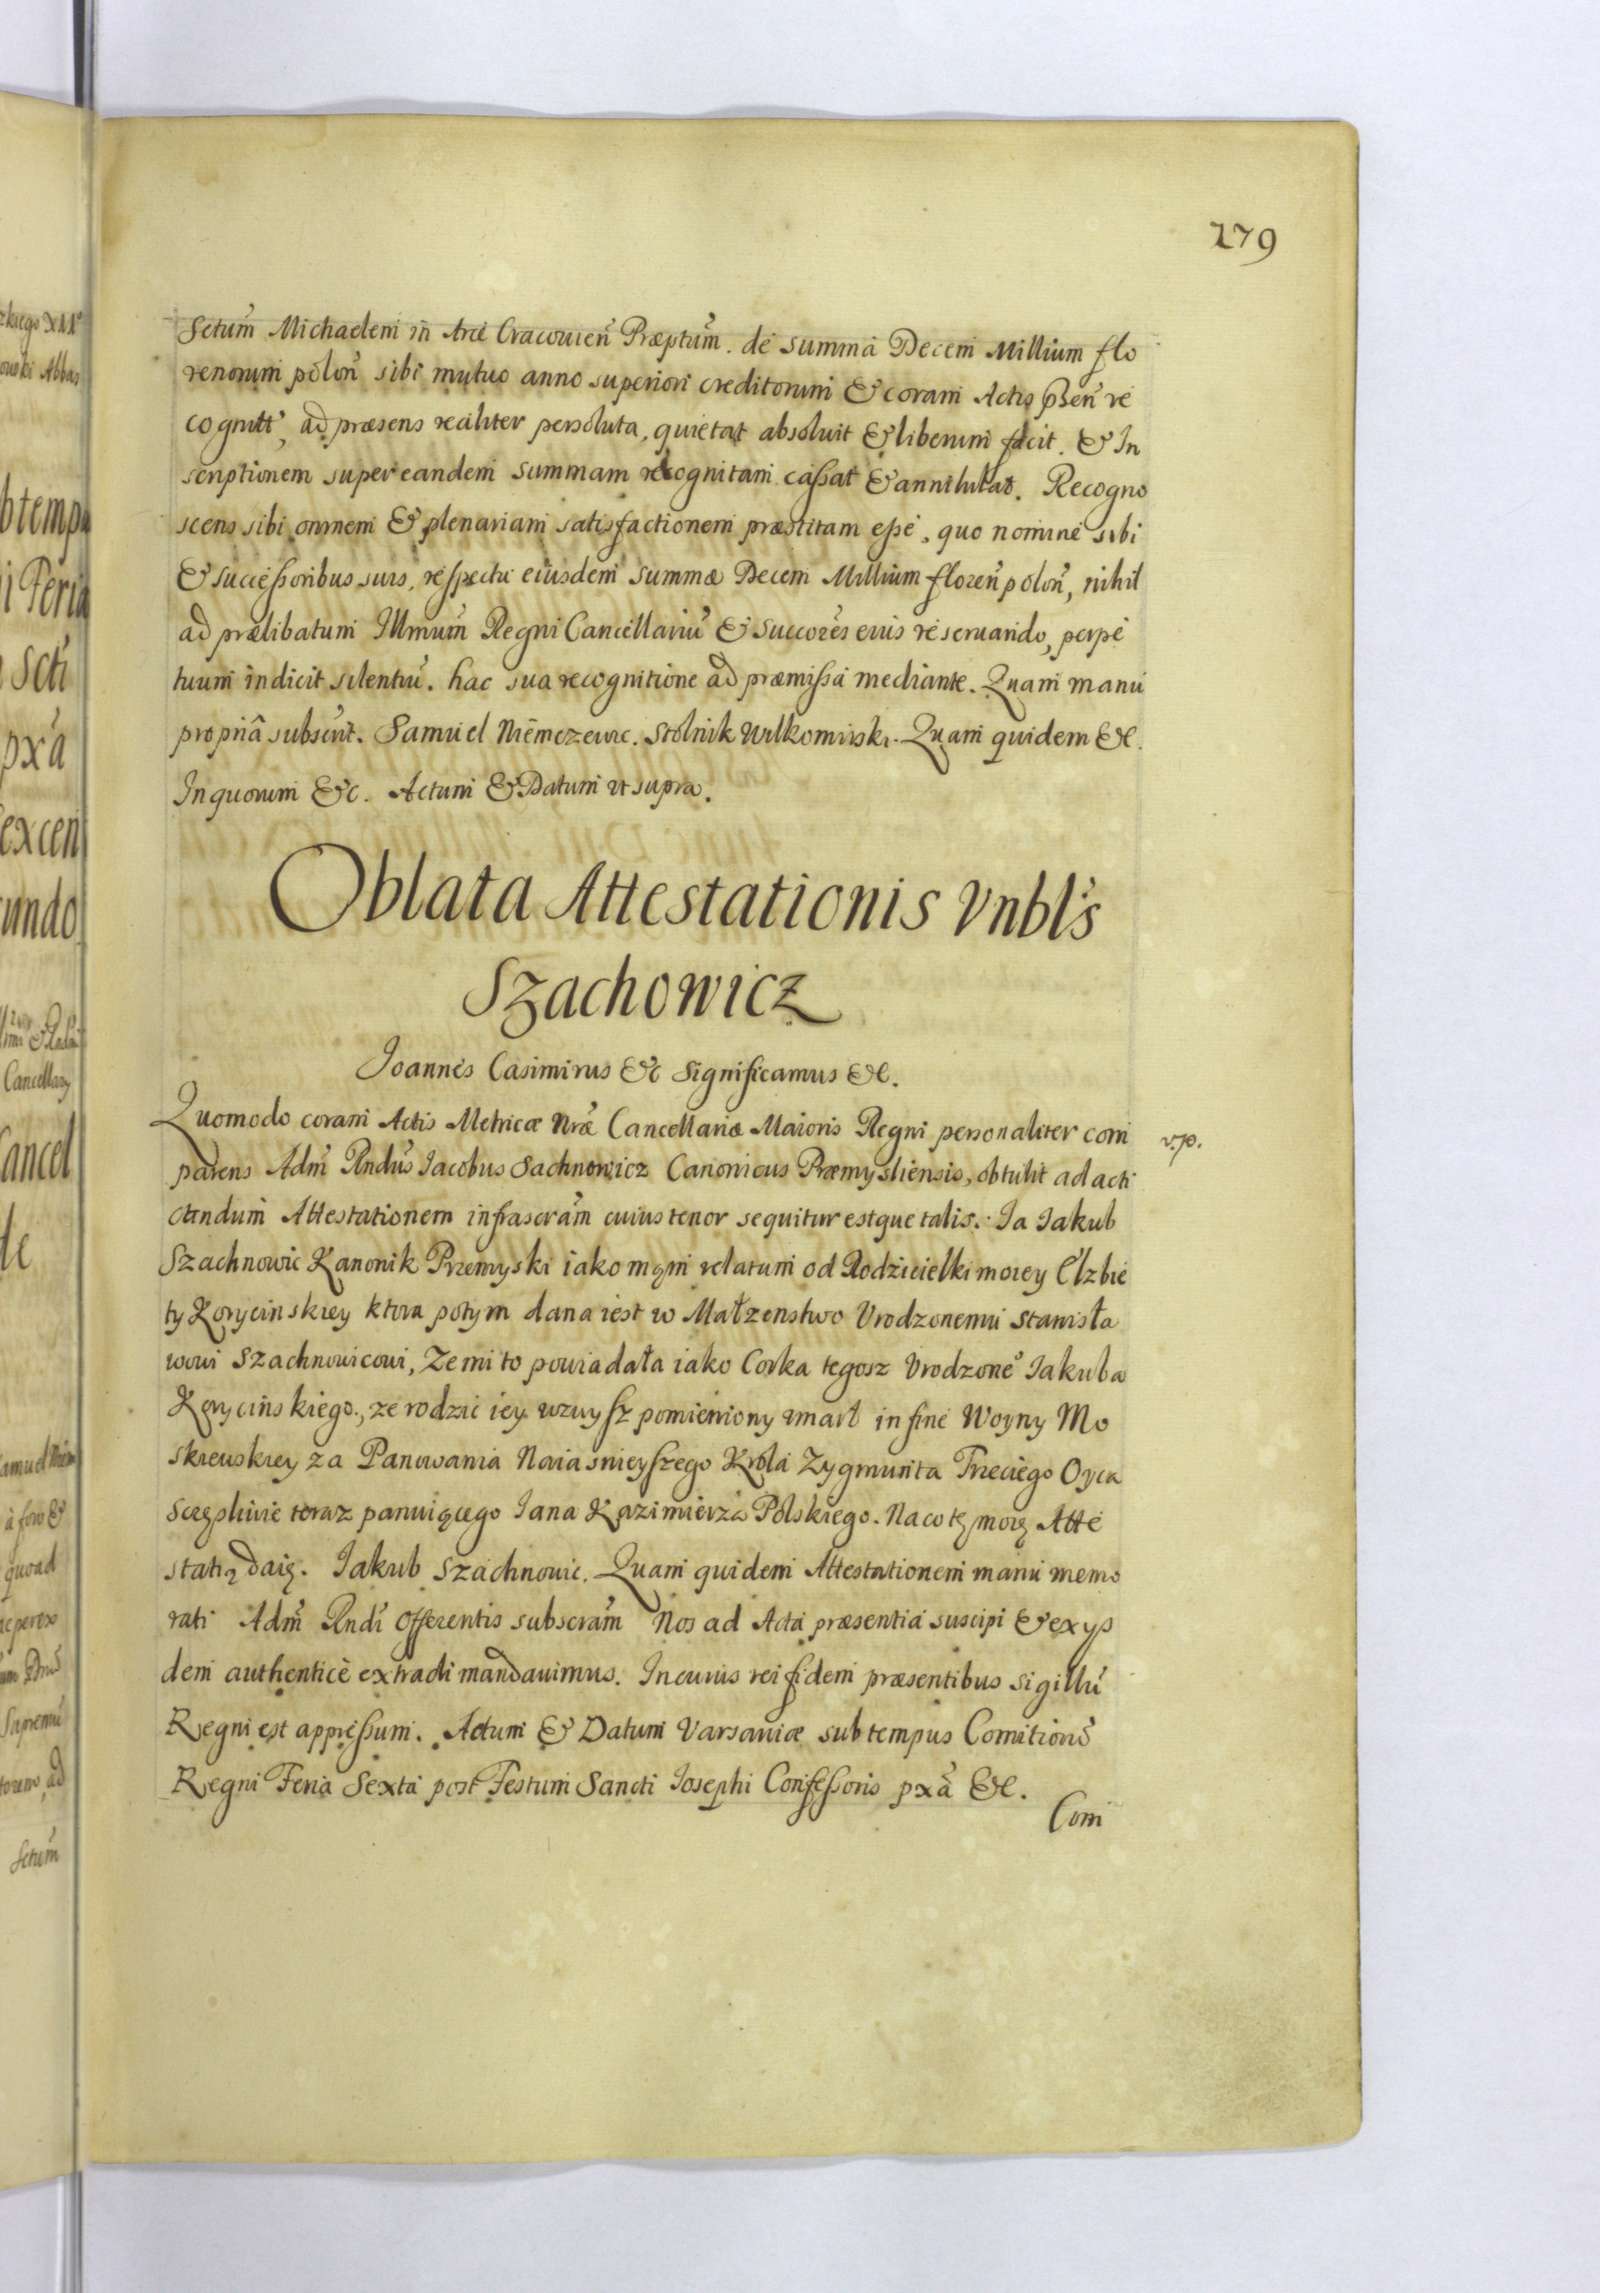 179
Sctum̃ Michaelem in Arce Cracouien̄ Præptum̃. de summa Decem Millium flo
renorum polon̄ sibi mutuo anno superiori creditorum & coram Actis pn̄ re
cognitt, ad præsens realiter persoluta, quietat absoluit & liberum facit. & In
scriptionem super eandem summam recognitam cassat & annihilat. Recogno
scens sibi omnem & plenariam satisfactionem præstitam esse, quo nomine sibi
& successoribus suis, respectu eiusdem summæ Decem Millium floren̄ polon̄, nihil
ad prælibatum Illmum̃ Regni Cancellariũ & succores̃ eius reseruando, perpe
tuum indicit silentiũ. hac sua recognitione ad præmissa mediante. Quam manu
propriâ subscrit̃. Samuel Niemczewic. Stolnik Wilkomirski. Quam quidem &c.
In quorum &c. Actum & Datum ut supra.
Oblata Attestationis Vnbl's
Szachowicz
Joannes Casimirus &c Significamus &c.
Quomodo coram Actis Metricæ Nræ̃ Cancellariæ Maioris Regni personaliter com
parens Adm̃ Rndus̃ Jacobus Sachnowicz Canonicus Præmysliensis, obtulit ad acti
candum Attestationem infrascram̃ cuius tenor sequitur estque talis. Ja Jakub
Szachnowic Kanonik Przemyski iako mam relatum od Rodzicielki moiey Elzbie
ty Korycinskiey ktora potym dana iest w Małzenstwo Vrodzonemu Stanisła
wowi Szachnowicowi, Ze mi to powiadała iako Corka tegosz Vrodzone° Jakuba
Korycinskiego, ze rodzic iey wzwysz pomieniony vmarł in fine Woyny Mo
skiewskiey za Panowania Naiasnieyszego Krola Zygmunta Trzeciego Oyca
sczęsliwie teraz panuiącego Jana Kazimierza Polskiego. Na co tę moię Atte
statią daię. Jakub Szachnowic. Quam quidem Attestationem manu memo
rati Adm̃ Rndi̇̃ Offerentis subscram̃ Nos ad Acta præsentia suscipi & ex ys
dem authenticè extradi mandauimus. In cuius rei fidem præsentibus sigillũ
Regni est appressum. Actum & Datum Varsauiæ sub tempus Comitiorũ
Regni Feria Sexta post Festum Sancti Josephi Confessoris pxã &c.
Com